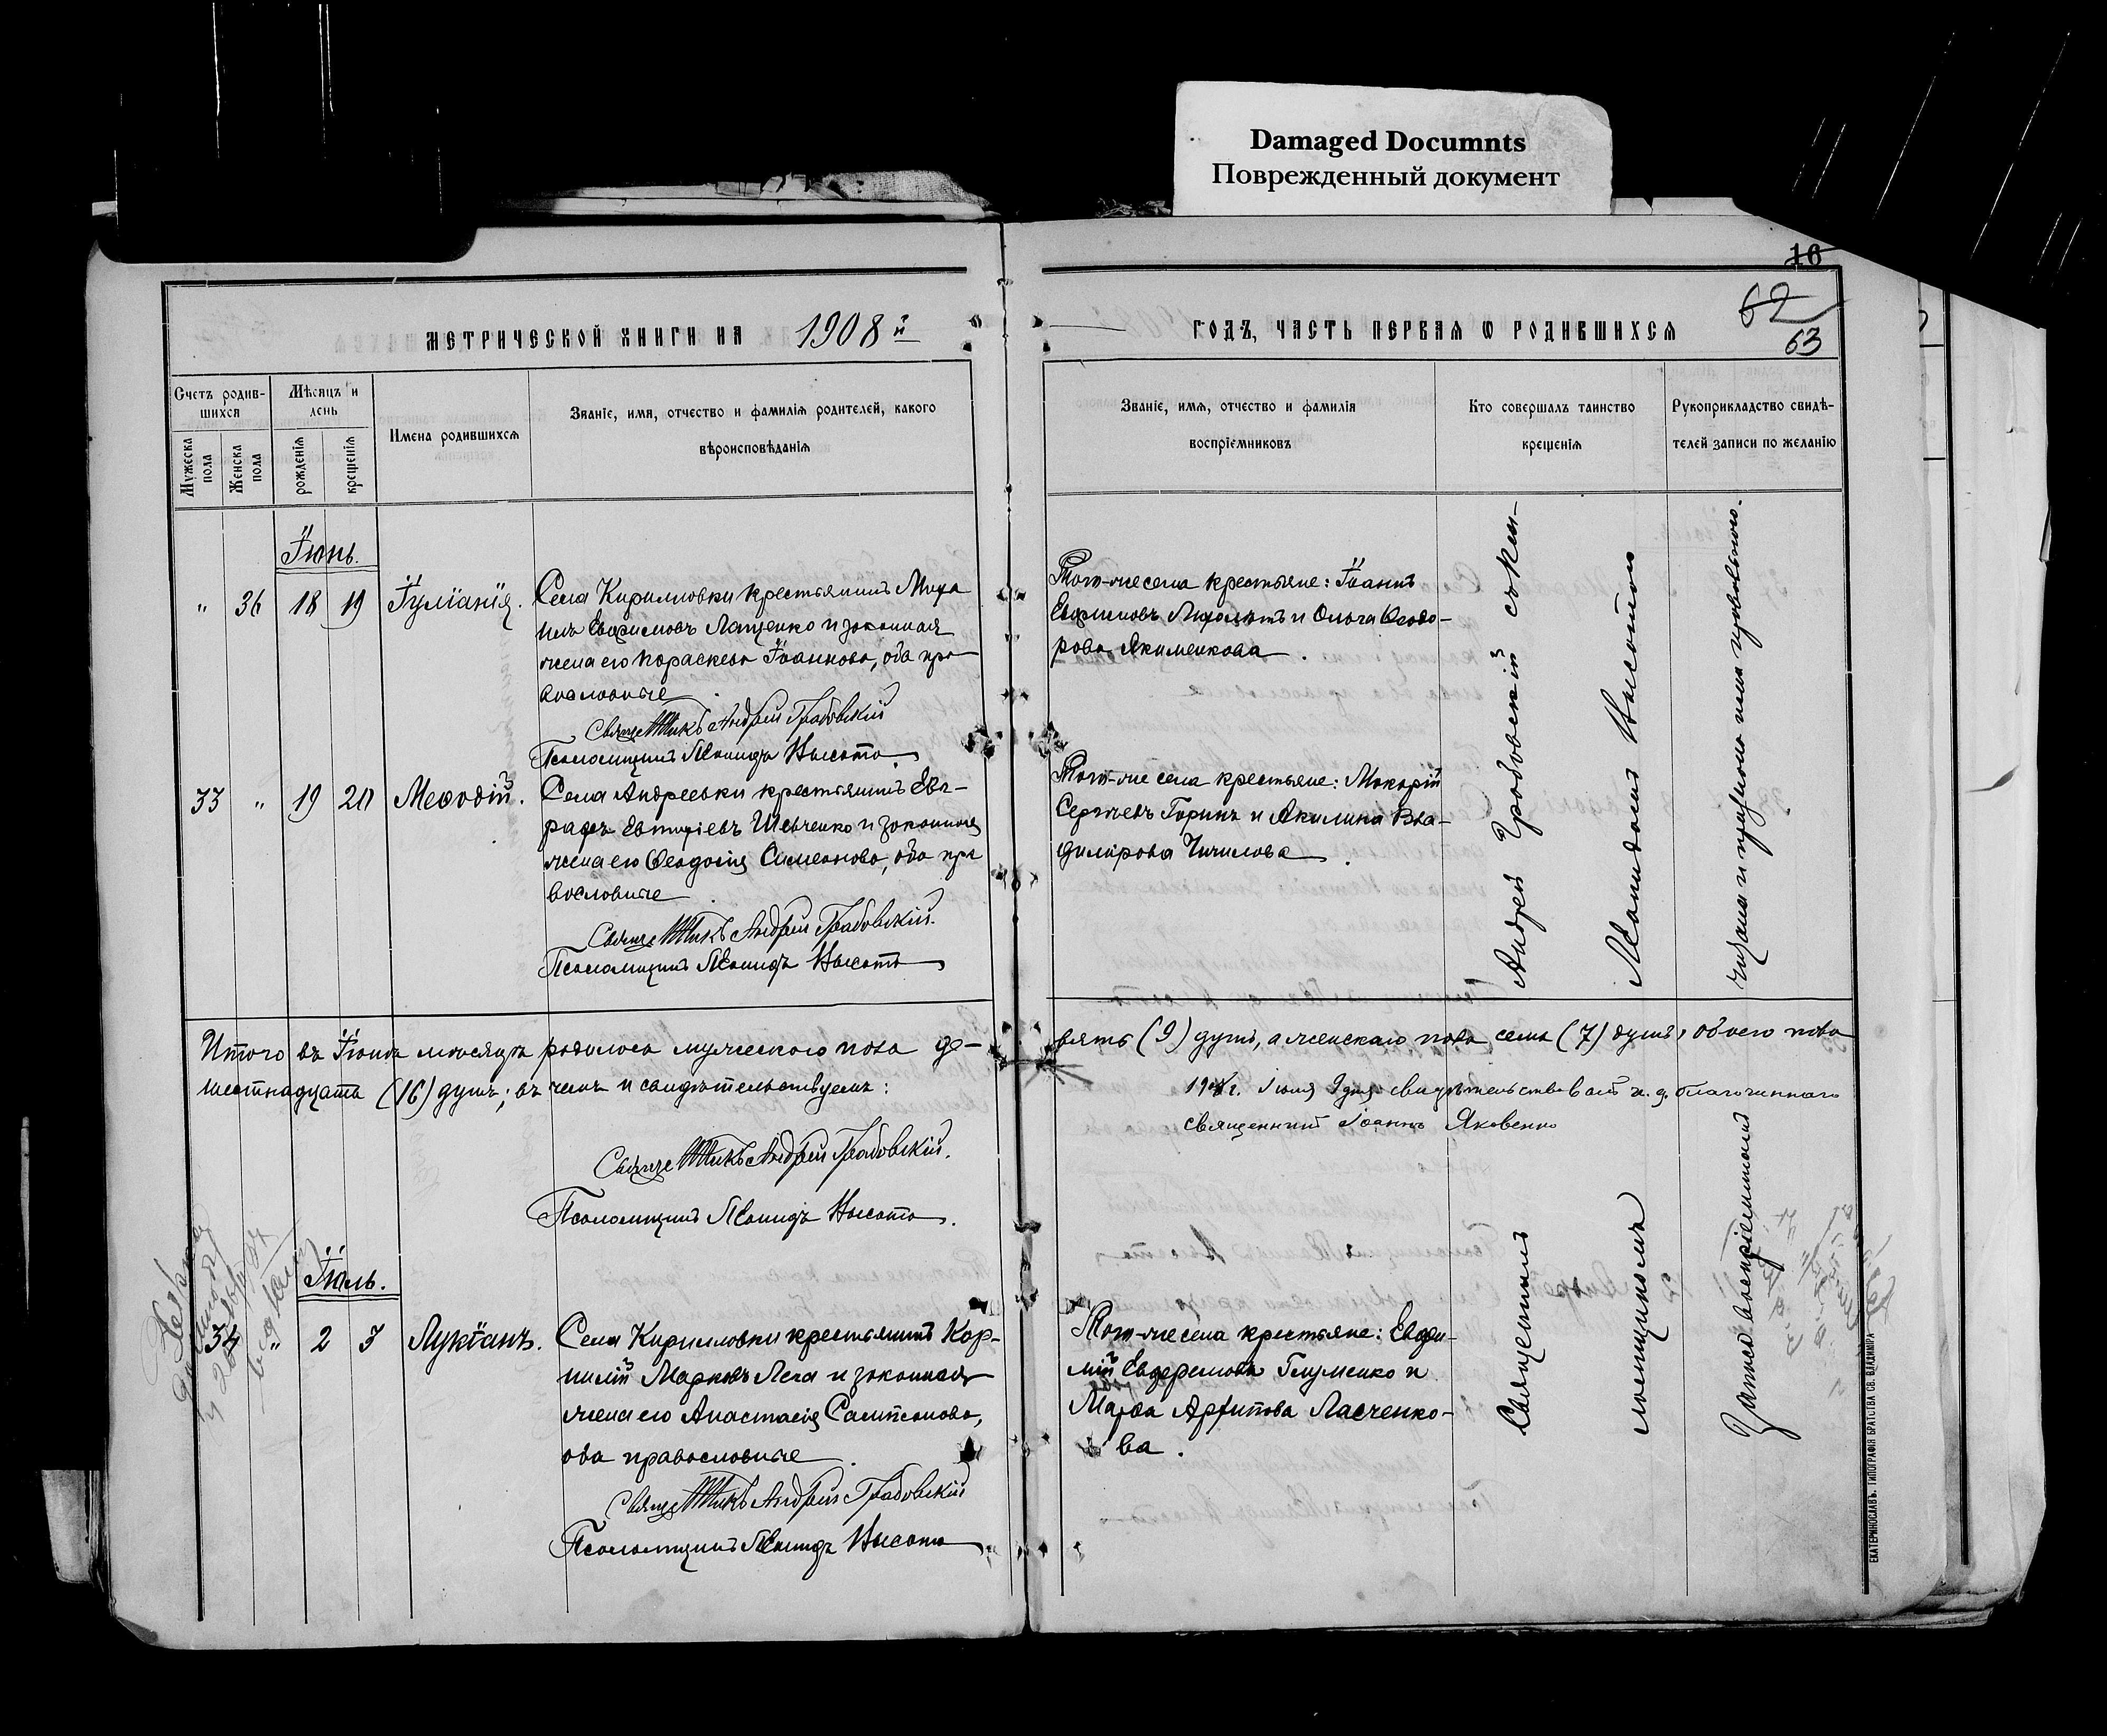 Damaged Documnts
Поврежденный документ
16
62
63
МЕТРИЧЕСКОЙ КНИГИ НА 1908й
ГОДЪ, ЧАСТЬ ПЕРВАЯ Ѡ РОДИВШИХСЯ
Счетъ родившихся
Мужеска пола
Женска пола
Мѣсяцъ и день
рожденія
крещенія
Имена родившихся
Званіе, имя, отчество и фамилія родителей, какого
вѣроисповѣданія
Званіе, имя, отчество и фамилія
воспріемниковъ
Кто совершалъ таинство
крещенія
Рукоприкладство свидѣ-
телей записи по желанію
Іюнь.
" 36 18 19 Іуліанія.
Села Кирилловки крестьянинъ Миха
илъ Евфимовъ Лащенко и законная
жена его Параскева Іоаннова, оба пра
вославные
Священникъ Андрей Грабовскій
Псаломщикъ Леонидъ Высота
Того-же села крестьяне: Іоаннъ
Евфимовъ и Ольга Ѳеодо-
рова Якименкова.
33 " 19 20 Меѳодій.
Села Андреевки крестьянинъ Ев-
графъ Евтихіевъ Шевченко и законная
жена его Ѳеодосія Симеонова, оба пра
вославные
Священникъ Андрей Грабовскій.
Псаломщикъ Леонидъ Высота
Того-же села крестьяне: Макарій
Сергѣевъ Горинъ и Акилина Вла-
димірова Чичилова.
Итого въ Іюнѣ мѣсяцѣ родилось мужескаго пола де-
вять (9) душъ, а женскаго пола семь (7) душъ, обоего пола
шестнадцать (16) душъ; въ чемъ и свидѣтельствуемъ:
1908г. Іюля 9 дня свидѣтельствовалъ и. д. благочиннаго
священникъ Іоаннъ Яковенко
Священникъ Андрей Грабовскій.
Псаломщикъ Леонидъ Высота.
Іюль.
34 " 2 3 Лукіанъ.
Села Кирилловки крестьянинъ Кор-
нилій Марковъ Лега и законная
жена его Анастасія Сампсонова,
оба православные.
Священникъ Андрей Грабовскій
Псаломщикъ Леонидъ Высота
Того-же села крестьяне: Евѳи-
мій Евфремовъ Глуменко и
Марѳа Архипова Ласченко-
ва.
Священникъ Андрей Грабовскій съ пса-
ломщикомъ Леонидомъ Высотою
ЕКАТЕРИНОСЛАВЪ. ТИПОГРАФІЯ БРАТСТВА СВ. ВЛАДИМІРА